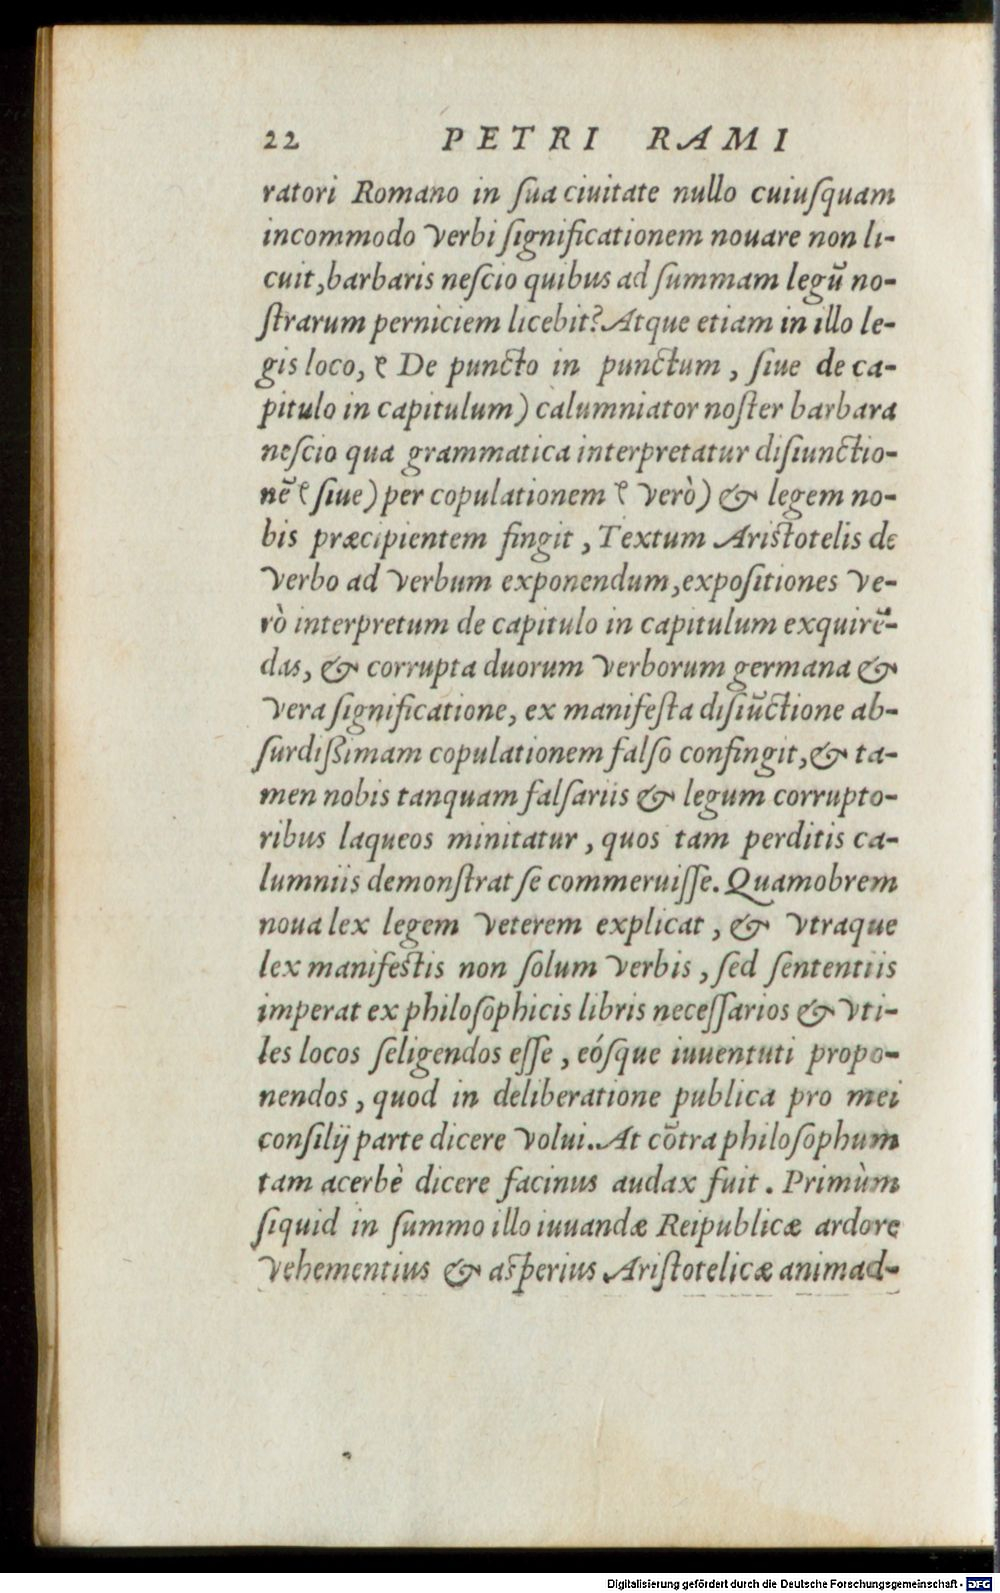 22 PETRI RAMI
ratori Romano in ſua ciuitate nullo cuiuſquam
incommodo verbi ſignificationem nouare non li-
cuit, barbaris neſcio quibus ad ſummam legũ no-
ſtrarum perniciem licebit? Atque etiam in illo le-
gis loco, ( De puncto in punctum, ſiue de ca-
pitulo in capitulum) calumniator noſter barbara
neſcio qua grammatica interpretatur diſiunctio-
nẽ (ſiue) per copulationem ( verò) & legem no-
bis præcipientem fingit, Textum Ariſtotelis de
verbo ad verbum exponendum, expoſitiones ve-
rò interpretum de capitulo in capitulum exquirẽ-
das, & corrupta duorum verborum germana &
vera ſignificatione, ex manifeſta diſiũctione ab-
ſurdißimam copulationem falſo confingit, & ta-
men nobis tanquam falſariis & legum corrupto-
ribus laqueos minitatur, quos tam perditis ca-
lumniis demonſtrat ſe commeruiſſe. Quamobrem
noua lex legem veterem explicat, & vtraque
lex manifeſtis non ſolum verbis, ſed ſententiis
imperat ex philoſophicis libris neceſſarios & vti-
les locos ſeligendos eſſe, eóſque iuuentuti propo-
nendos, quod in deliberatione publica pro mei
conſilij parte dicere volui. At cõtra philoſophum
tam acerbè dicere facinus audax fuit. Primùm
ſiquid in ſummo illo iuuandæ Reipublicæ ardore
vehementius & aſperius Ariſtotelicæ animad-
Digitalisierung gefördert durch die Deutsche Forschungsgemeinschaft - DFG